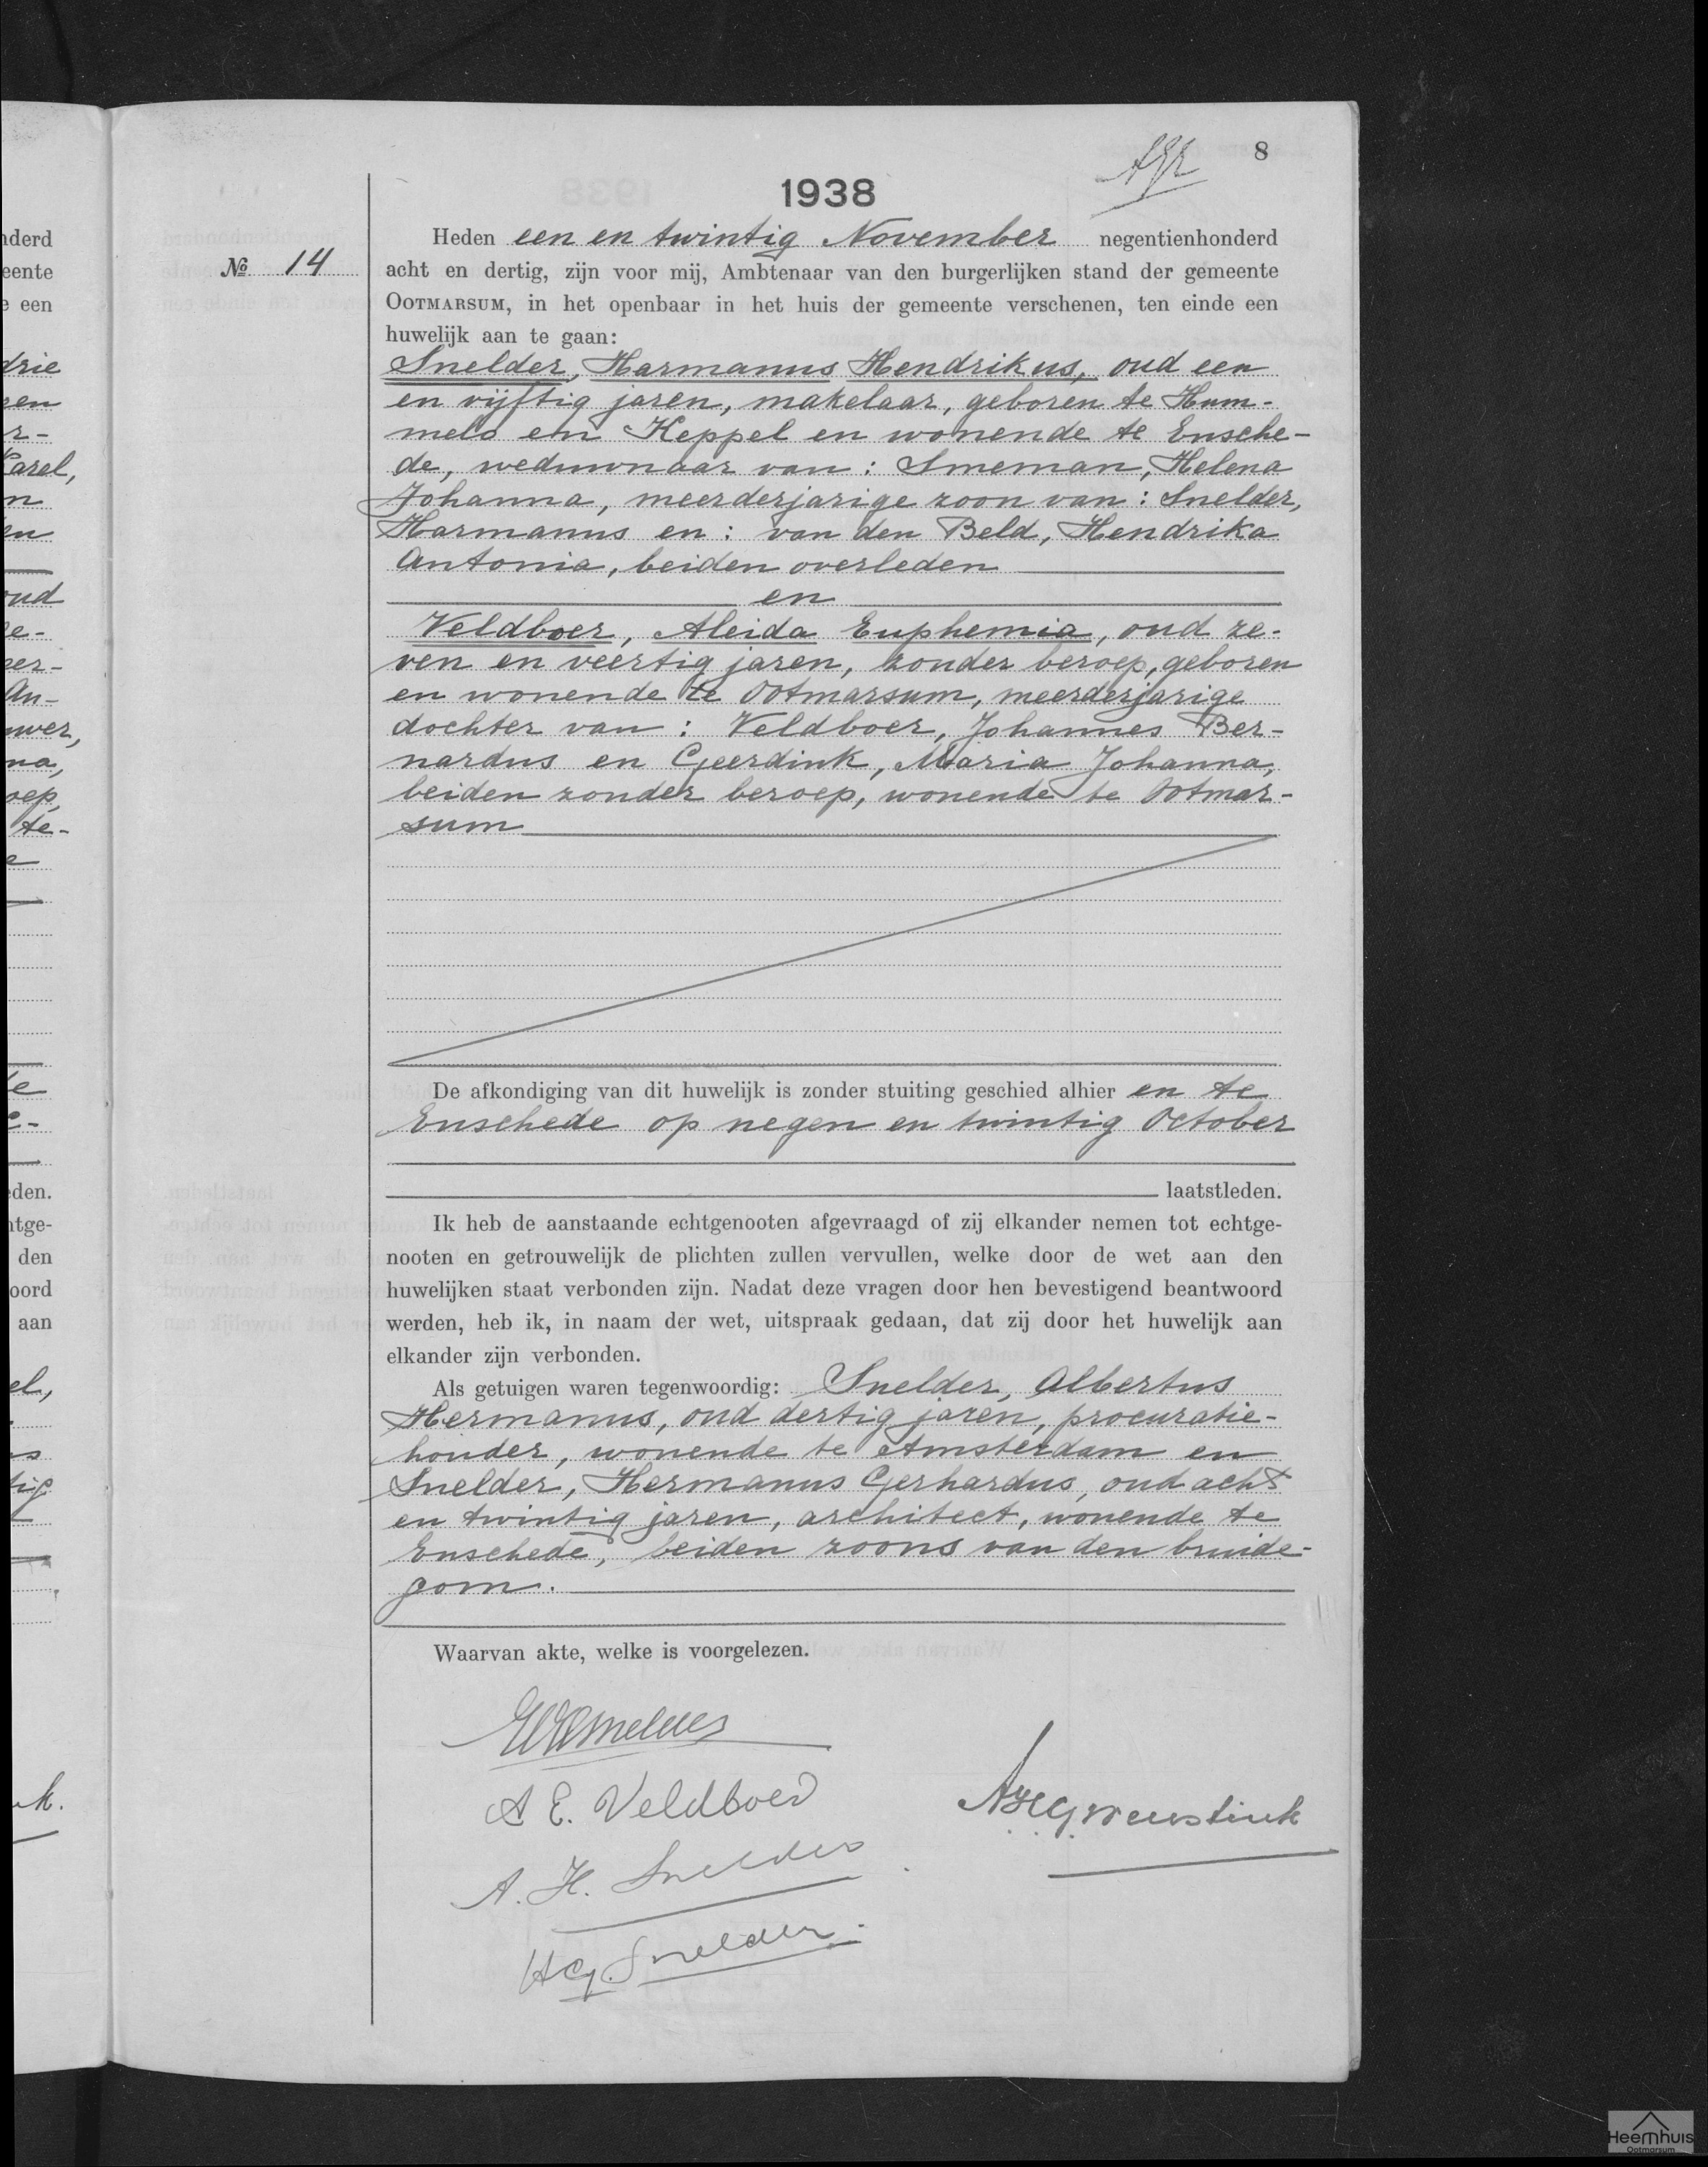 8
1938
nderd
eente
e een
drie
Carel,
oud
An-
uwer,
na,
oep,
te-
eden.
htge-
den
oord
aan
el,
tig
№ 14
Heden een en twintig November negentienhonderd
acht en dertig, zijn voor mij, Ambtenaar van den burgerlijken stand der gemeente
OOTMARSUM, in het openbaar in het huis der gemeente verschenen, ten einde een
huwelijk aan te gaan:
Snelder, Harmanus Hendrikus, oud een
en vijftig jaren, makelaar, geboren te Hum-
melo en Keppel en wonende te Ensche-
de, weduwnaar van: Smeman, Helena
Johanna, meerderjarige zoon van: Snelder,
Harmanus en: van den Beld, Hendrika
Antonia, beiden overleden
en
Veldboer, Aleida Euphemia, oud ze-
ven en veertig jaren, zonder beroep, geboren
en wonende te Ootmarsum, meerderjarige
dochter van: Veldboer, Johannes Ber-
nardus en Geerdink, Maria Johanna,
beiden zonder beroep, wonende te Ootmar-
sum
De afkondiging van dit huwelijk is zonder stuiting geschied alhier en te
Enschede op negen en twintig October
laatstleden.
Ik heb de aanstaande echtgenooten afgevraagd of zij elkander nemen tot echtge-
nooten en getrouwelijk de plichten zullen vervullen, welke door de wet aan den
huwelijken staat verbonden zijn. Nadat deze vragen door hen bevestigend beantwoord
werden, heb ik, in naam der wet, uitspraak gedaan, dat zij door het huwelijk aan
elkander zijn verbonden.
Als getuigen waren tegenwoordig: Snelder, Albertus
Hermanus, oud dertig jaren, procuratie-
houder, wonende te Amsterdam en
Snelder, Hermanus Gerhardus, oud acht
en twintig jaren, architect, wonende te
Enschede, beiden zoons van den bruide-
gom.
Waarvan akte, welke is voorgelezen.
HHSnelder
A E. Veldboer
A. H. Snelder
HG. Snelder.
Heemhuis
Ootmarsum